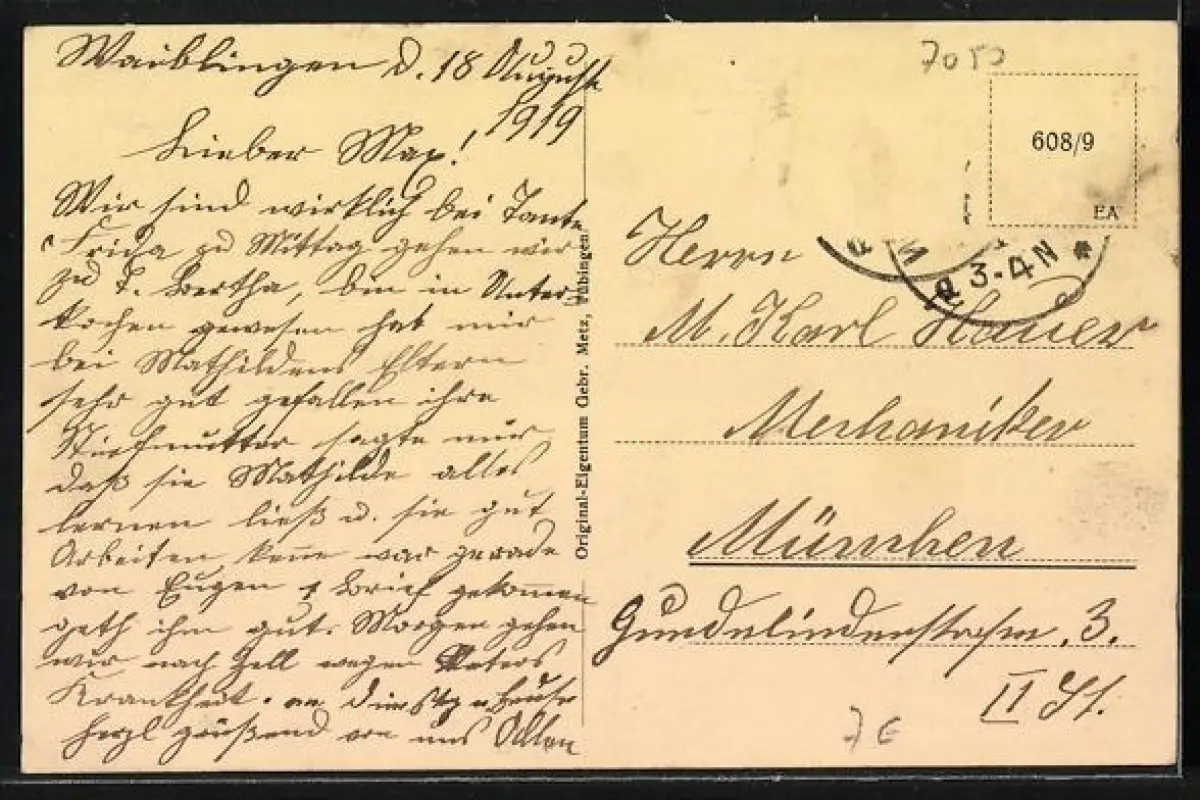 Waiblingen d. 18 August
1919
Lieber Max!
Wir sind wirklich bei Tante
Frida zu Mittag gehen wir
zu T. Bertha, bin in Unter-
kochen gewesen hat mir
bei Mathildens Eltern
sehr gut gefallen ihre
Stiefmutter sagte nur
daß sie Mathilde alles
lernen ließ u. sie gut
Arbeiten kenne war gerade
von Eugen 1 Brief gekommen
geth ihm gut. Morgen gehen
wir nach Zell wegen Vaters
Krankheit.
herzl grüßend von uns Allen
Original-Eigentum Gebr. Metz, Tübingen
7050
608/9
EA
3-4N *
Herrn
M. Karl Hauer
Mechaniker
München
Gundelindenstrasse, 3.
II St.
7€